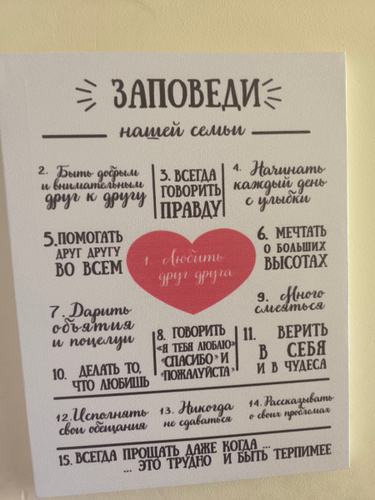 ЗАПОВЕДИ
нашей семьи
1. Любить
друг друга
2. Быть добрым
и внимательным
друг к другу
3. ВСЕГДА
ГОВОРИТЬ
ПРАВДУ
4. Начинать
каждый день
с улыбки
5. ПОМОГАТЬ
ДРУГ ДРУГУ
ВО ВСЕМ
6. МЕЧТАТЬ
О БОЛЬШИХ
ВЫСОТАХ
7. Дарить
объятия
и поцелуи
8. ГОВОРИТЬ
«Я ТЕБЯ ЛЮБЛЮ»
"СПАСИБО" И
"ПОЖАЛУЙСТА"
9. Много
смеяться
10. ДЕЛАТЬ ТО,
ЧТО ЛЮБИШЬ
11. ВЕРИТЬ
В СЕБЯ
И В ЧУДЕСА
12. Исполнять
свои обещания
13. Никогда
не сдаваться
14. Рассказывать
о своих проблемах
15. ВСЕГДА ПРОЩАТЬ ДАЖЕ КОГДА ...
... ЭТО ТРУДНО И БЫТЬ ТЕРПИМЕЕ